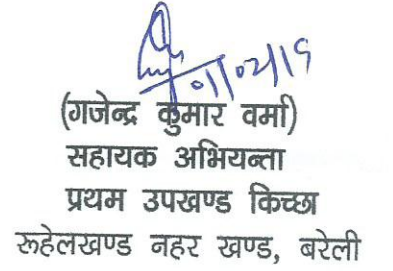 (गजेन्द्र कुमार वर्मा)
सहायक अभियन्ता
प्रथम उपखण्ड किच्छा
रूहेलखण्ड नहर खण्ड, बरेली